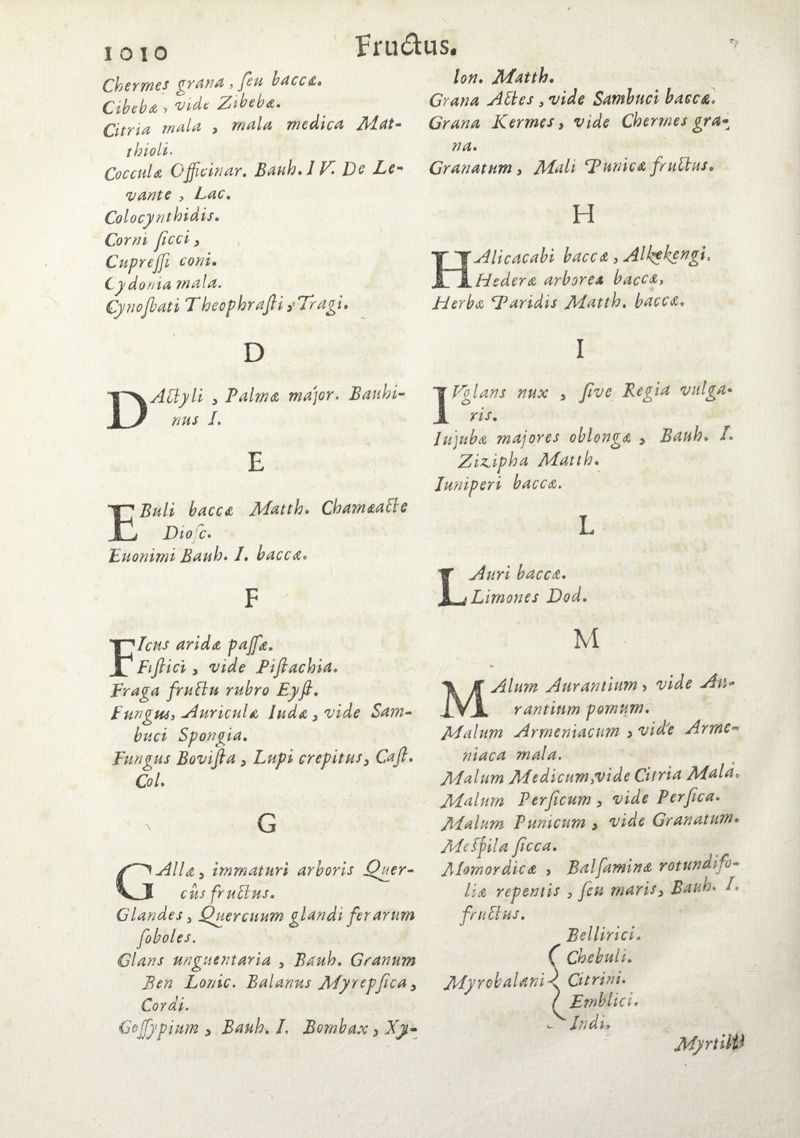 1010
Fructus.
Chermes grana, ſeu baccæ.
Cibebæ, vide Zibebæ.
Citria mala, mala medica Mat-
thioli.
Cocculæ Officinar. Bauh. IV. De Le-
vante, Lac.
Colocynthidis.
Corni ſicci,
Cupreſſi coni.
Cydonia mala.
Cynoſbati Theophraſti, Tragi.
D
DActyli, Palmæ major. Bauhi-
nus I.
E
EBuli baccæ Matth. Chamæacte
Dioſc.
Euonimi Bauh. I. baccæ.
F
FIcus aridæ paſſæ.
Fiſtici, vide Piſtachia.
Fraga fructu rubro Eyſt.
Fungus, Auriculæ Iudæ, vide Sam-
buci Spongia.
Fungus Boviſta, Lupi crepitus, Caſt.
Col.
G
GAllæ, immaturi arboris Quer-
cûs fructus.
Glandes, Quercuum glandiferarum
ſoboles.
Glans unguentaria, Bauh. Granum
Ben Lonic. Balanus Myrepſica,
Cordi.
Goſſypium, Bauh. I. Bombax, Xy-
lon. Matth.
Grana Actes, vide Sambuci baccæ.
Grana Kermes, vide Chermes gra-
na.
Granatum, Mali Punicæ fructus.
H
HAlicacabi baccæ, Alkekengi.
Hederæ arboreæ baccæ,
Herbæ Paridis Matth. baccæ.
I
IVglans nux, ſive Regia vulga-
ris.
Iujubæ majores oblongæ, Bauh. I.
Zizipha Matth.
Iuniperi baccæ.
L
LAuri baccæ.
Limones Dod.
M
MAlum Aurantium, vide Au-
rantium pomum.
Malum Armeniacum, vide Arme-
niaca mala.
Malum Medicum, vide Citria Mala.
Malum Perſicum, vide Perſica.
Malum Punicum, vide Granatum.
Meſpila ſicca.
Momordicæ, Balſaminæ rotundifo-
liæ repentis, ſeu maris, Bauh. I.
fructus.
Bellirici.
Chebuli.
Myrobalani Citrini.
Emblici.
Indi.
Myrtilli